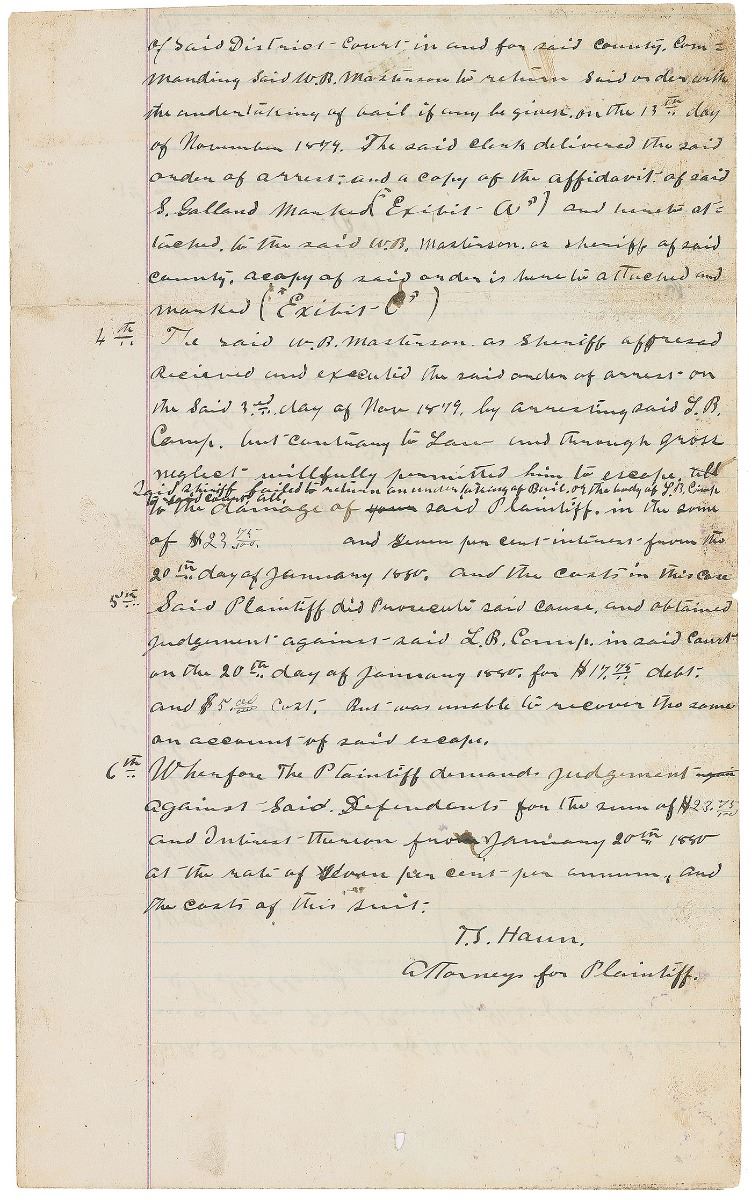 of Said District Court in and for said county. Com=
manding Said W.B. Masterson to return Said order with
the undertaking of bail if any be given. on the 13th day
of November 1879. The said clerk delivered the said
order of arrest. and a copy of the affidavit of said
S. Galland Marked ("Exibit A") and hereto at=
tached. to the said W.B. Masterson. as sheriff of said
county. a copy of said order is hereto attached and
marked ("Exibit C")
4th The said W.B. Masterson as Sheriff affresad
Recieved and executed the said order of arrest on
the Said 3rd day of Nov 1879. by arresting said L.B.
Camp. but contuary to Law and through gross
neglect willfully permitted him to escape.
Said sheriff failed to return an undertaking of Bail. or the body of L.B. Camp
to said court at all.
to the damage of said Plaintiff. in the sum
of $23 75/100. and Seven per cent interest from the
20th day of January 1880. and the costs in this case
5th Said Plaintiff did Prosecute said cause. and obtained
judgement against said L.B. Camp. in said Court
on the 20th day of January 1880. for $17.75 debt.
and $5. cost. But was unable to recover the same
on account of said escape.
6th Wherfore The Plaintiff demands judgement
against Said. Defendants for the sum of $23.75/100
and Interest thereon from January 20th 1880
at the rate of Seven per cent per annum, and
The costs of this suit.
T.S. Haun.
Attorneys for Plaintiff.